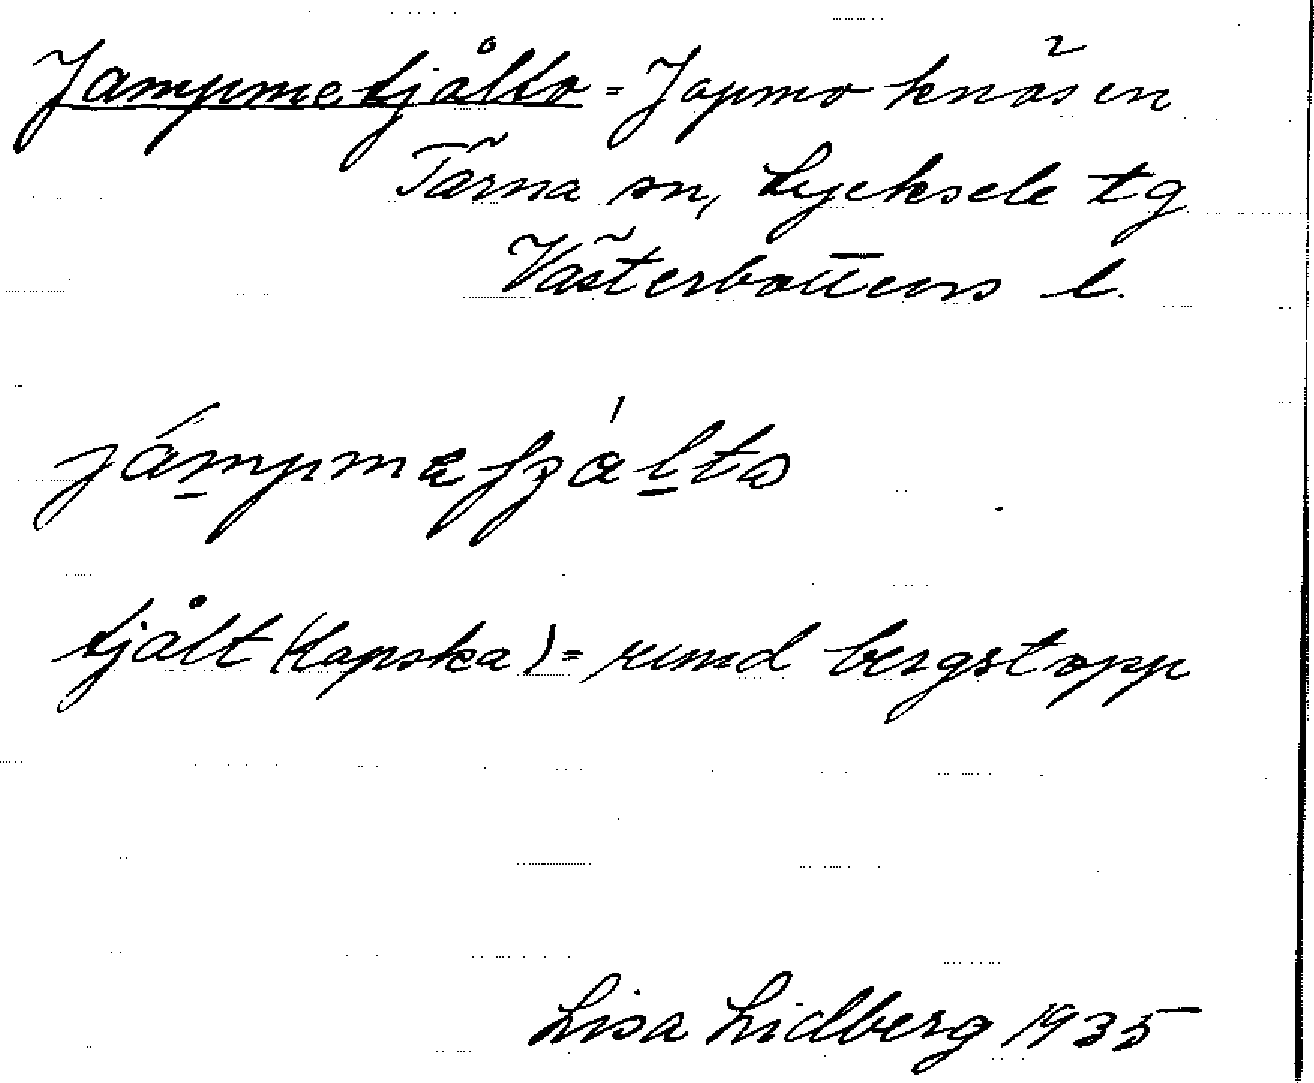 Jampmetjålto = Japmo knäsen
Tärna sn, Lycksele tg
Västerbottens l.
tjålt (lapska) = rund bergstopp
Lisa Lidberg 1935